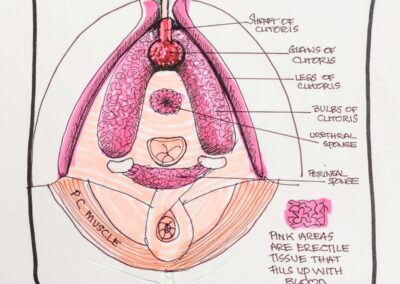 SHAFT OF
CLITORIS
GLANS OF
CLITORIS
LEGS OF
CLITORIS
BULBS OF
CLITORIS
URETHRAL
SPONGE
PERINEAL
SPONGE
P.C. MUSCLE
PINK AREAS
ARE ERECTILE
TISSUE THAT
FILLS UP WITH
BLOOD